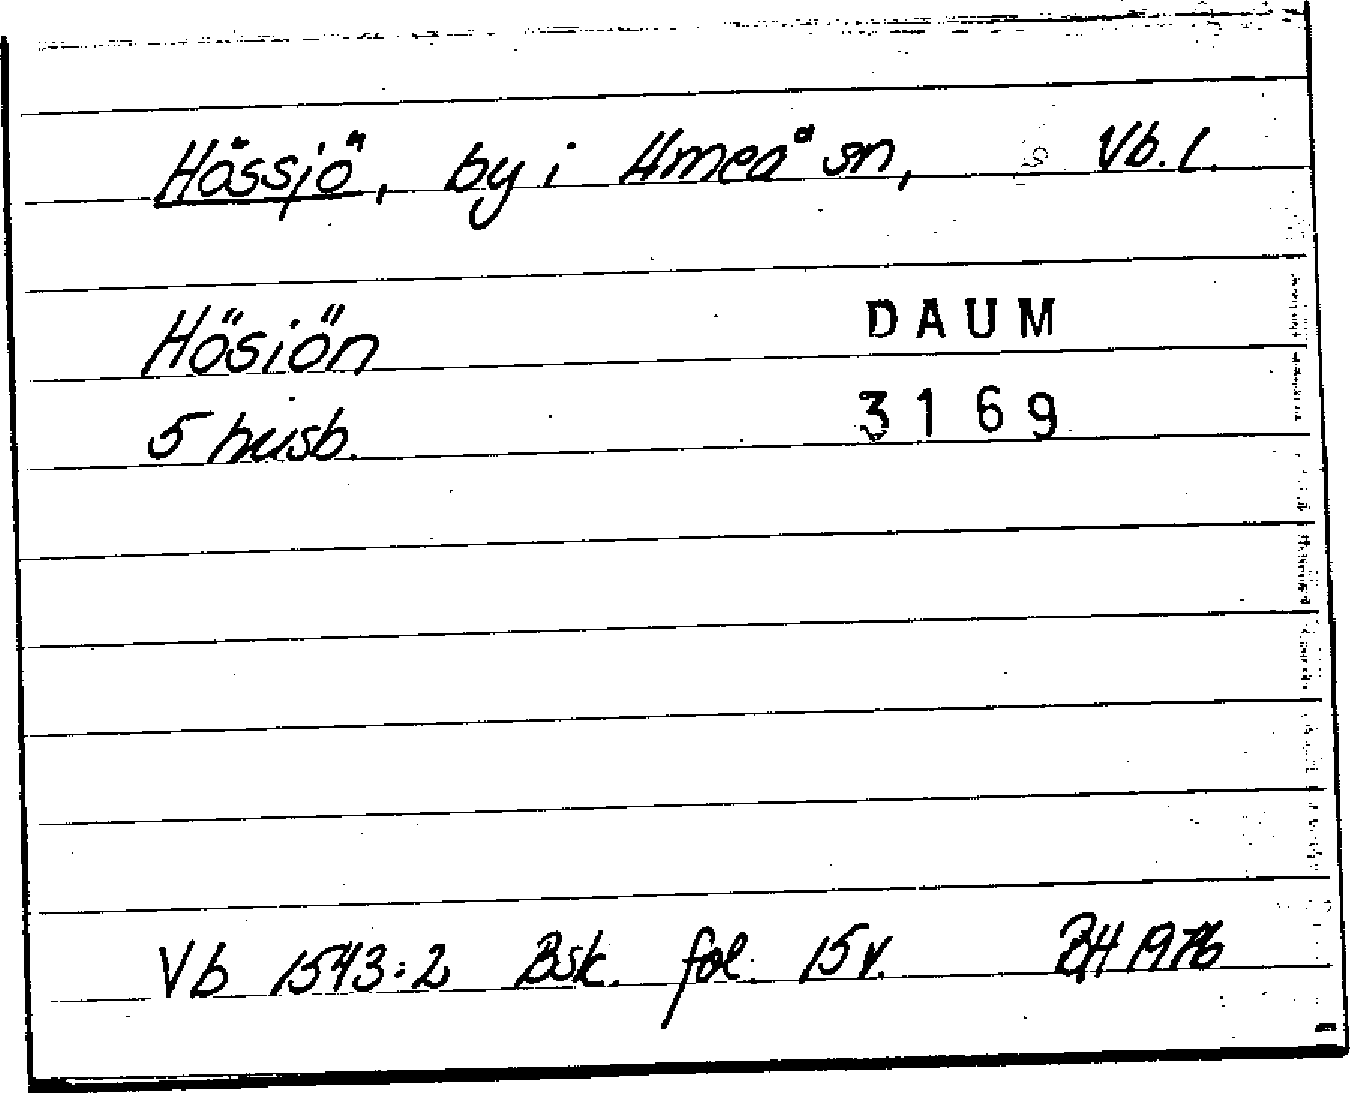 Hössjö, by i Umeå sn, Vb. l.
Hösiön DAUM
5 husb. 3169
Vb 1543:2 Bsk. fol. 15v. BH 1976